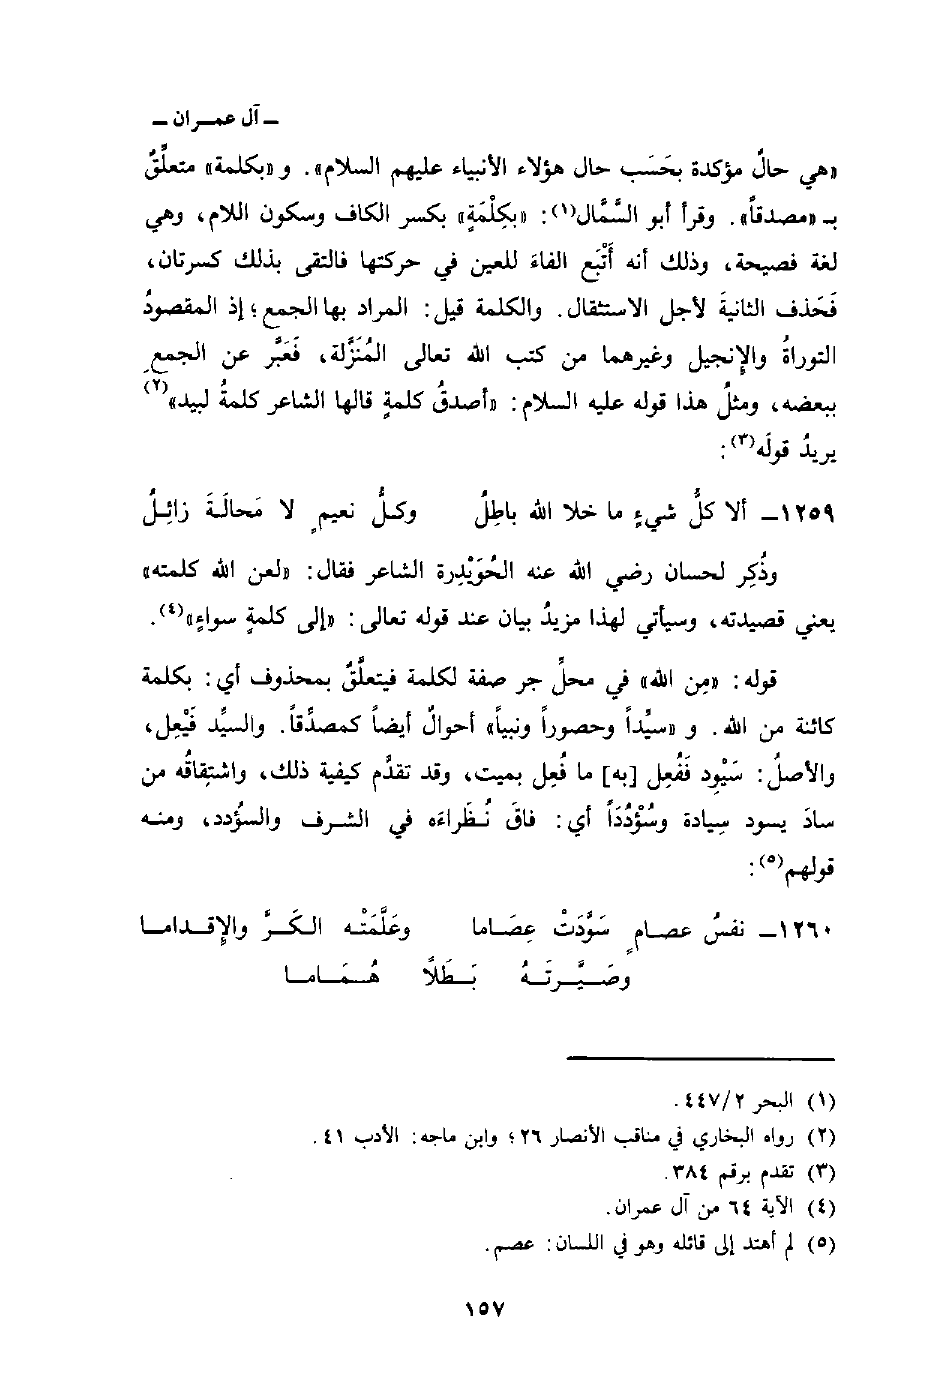 ـ آل عمـران ـ
«هي حالٌ مؤكدة بحَسَب حال هؤلاء الأنبياء عليهم السلام». و «بكلمة» متعلِّقٌ
بـ «مصدقاً». وقرأ أبو السَّمَّال(١): «بكِلْمَةٍ» بكسر الكاف وسكون اللام، وهي
لغة فصيحة، وذلك أنه أَتْبَع الفاءَ للعين في حركتها فالتقى بذلك كسرتان،
فَحَذف الثانيةَ لأجل الاستثقال. والكلمة قيل: المراد بها الجمع؛ إذ المقصودُ
التوراةُ والإِنجيل وغيرهما من كتب الله تعالى المُنَزَّلة، فَعَبَّر عن الجمعِ
ببعضه، ومثلُ هذا قوله عليه السلام: «أصدقُ كلمةٍ قالها الشاعر كلمةُ لبيد»(٢)
يريدُ قولَه(٣):
١٢٥٩ـ ألا كلُّ شيءٍ ما خلا الله باطِلُ وكلُّ نعيمٍ لا مَحالَةَ زائِلُ
وذُكِر لحسان رضي الله عنه الحُوَيْدِرة الشاعر فقال: «لعن الله كلمته»
يعني قصيدته، وسيأتي لهذا مزيدُ بيان عند قوله تعالى: «إلى كلمةٍ سواءٍ»(٤).
قوله: «مِن الله» في محلِّ جر صفة لكلمة فيتعلَّقُ بمحذوف أي: بكلمة
كائنة من الله. و «سيِّداً وحصوراً ونبياً» أحوالٌ أيضاً كمصدِّقاً. والسيِّد فَيْعِل،
والأصلُ: سَيْوِد فَفُعِل [به] ما فُعِل بميت، وقد تقدَّم كيفية ذلك، واشتقاقُه من
سادَ يسود سِيادة وسُؤْدُدَاً أي: فاقَ نُظَراءَه في الشرف والسؤدد، ومنه
قولهم(٥):
١٢٦٠ـ نفسُ عصـامٍ سَوَّدَتْ عِصَاما وعَلَّمَتْه الكَرَّ والإِقـدامـا
وصَـيَّـرتَـهُ بَـطَلًا هُـمَـامـا
(١) البحر ٢/٤٤٧.
(٢) رواه البخاري في مناقب الأنصار ٢٦؛ وابن ماجه: الأدب ٤١.
(٣) تقدم برقم ٣٨٤.
(٤) الآية ٦٤ من آل عمران.
(٥) لم أهتد إلى قائله وهو في اللسان: عصم.
١٥٧